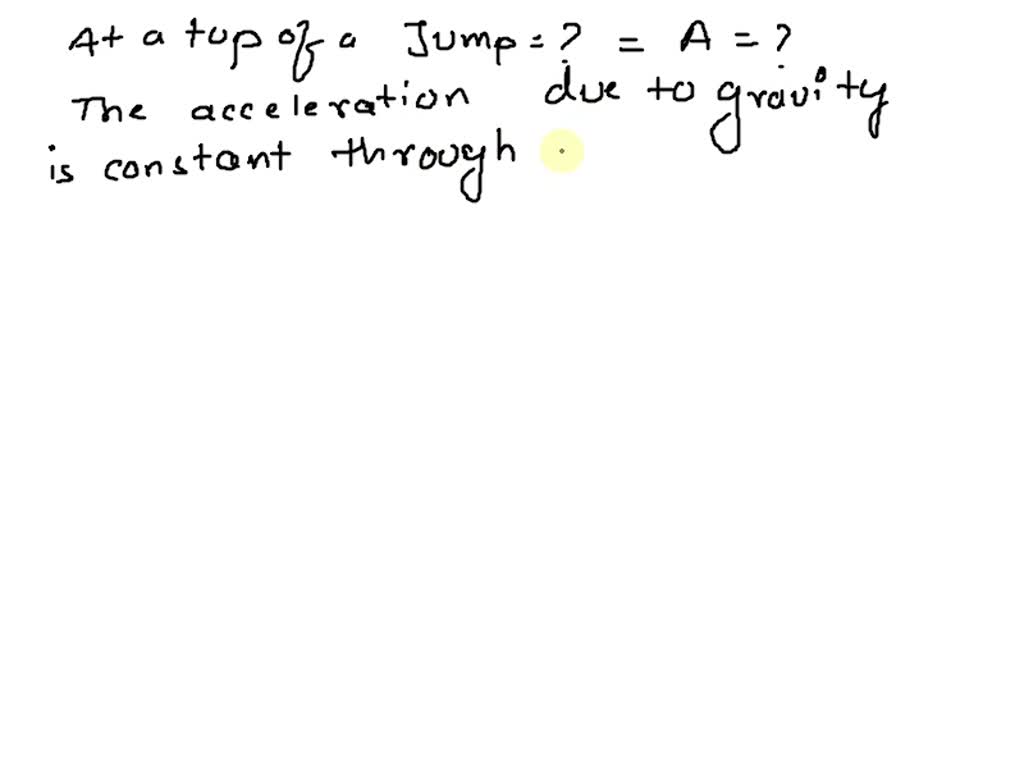 At a top of a Jump = ? = A = ?
The acceleration due to gravity
is constant through